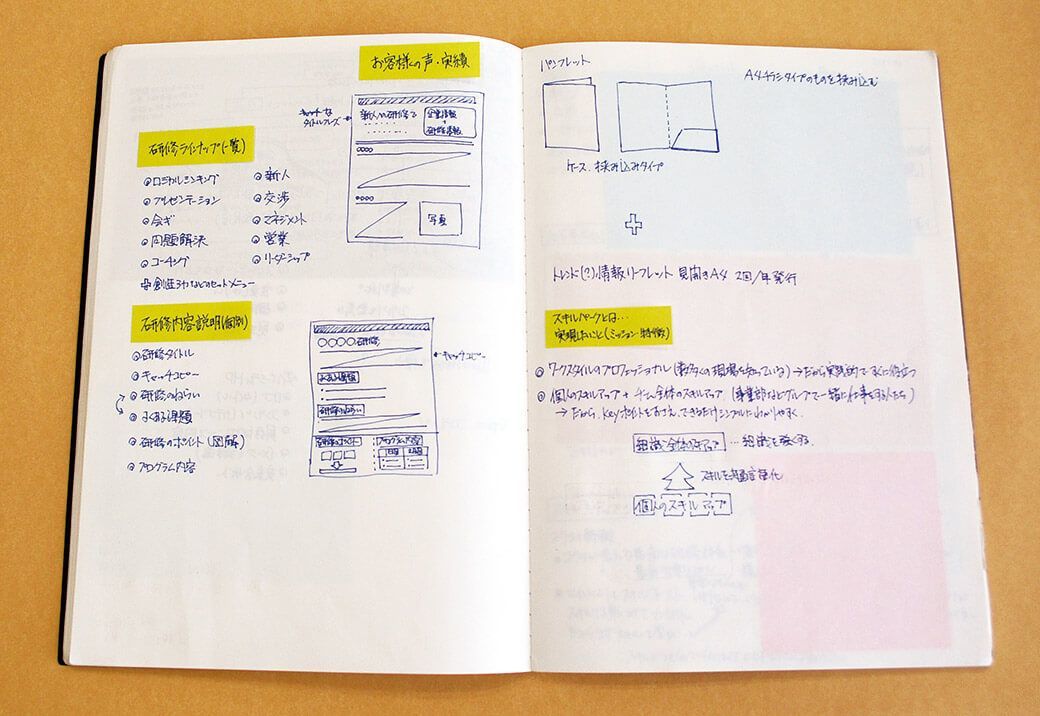 お客様の声・実績
キャッチな
タイトルフレーズ
新人の研修で
企業情報
+
研修情報
写真
研修ラインナップ(一覧)
ロジカルシンキング
プレゼンテーション
会ギ
問題解決
コーチング
新人
交渉
マネジメント
営業
リーダーシップ
創造力などのセットメニュー
研修内容説明(個別)
研修タイトル
キャッチコピー
研修のねらい
よくある課題
研修のポイント(図解)
プログラム内容
〇〇〇〇研修
←キャッチコピー
よくある課題
研修のねらい
研修のポイント
プログラム内容
1日目 2日目
パンフレット
A4チラシタイプのものを挟み込む
ケース、挟み込みタイプ
トレンド(?)情報リーフレット 見開きA4 2回/年発行
スキルパークとは…
実現したいこと(ミッション・特徴)
ワークスタイルのプロフェッショナル(数多くの現場を知っている)→だから実践的ですぐに役立つ
個人のスキルアップ + チーム全体のスキルアップ(事業部などグループで一緒に仕事をする人たち)
→だから、Keyポイントをおさえ、できるだけシンプルにわかりやすく
組織全体の …組織を強くする
スキルを共通言語化
個人のスキルアップ